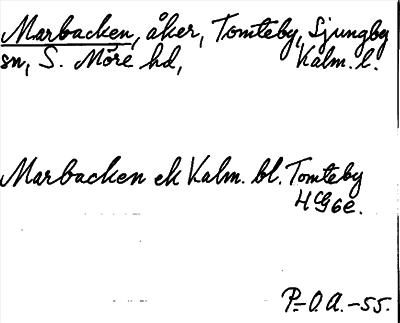 Marbacken, åker, Tomteby, Ljungby
sn, S. Möre hd, Kalm. l.
Marbacken ek Kalm. bl. Tomteby
4G6e.
P.-O.A.-55.